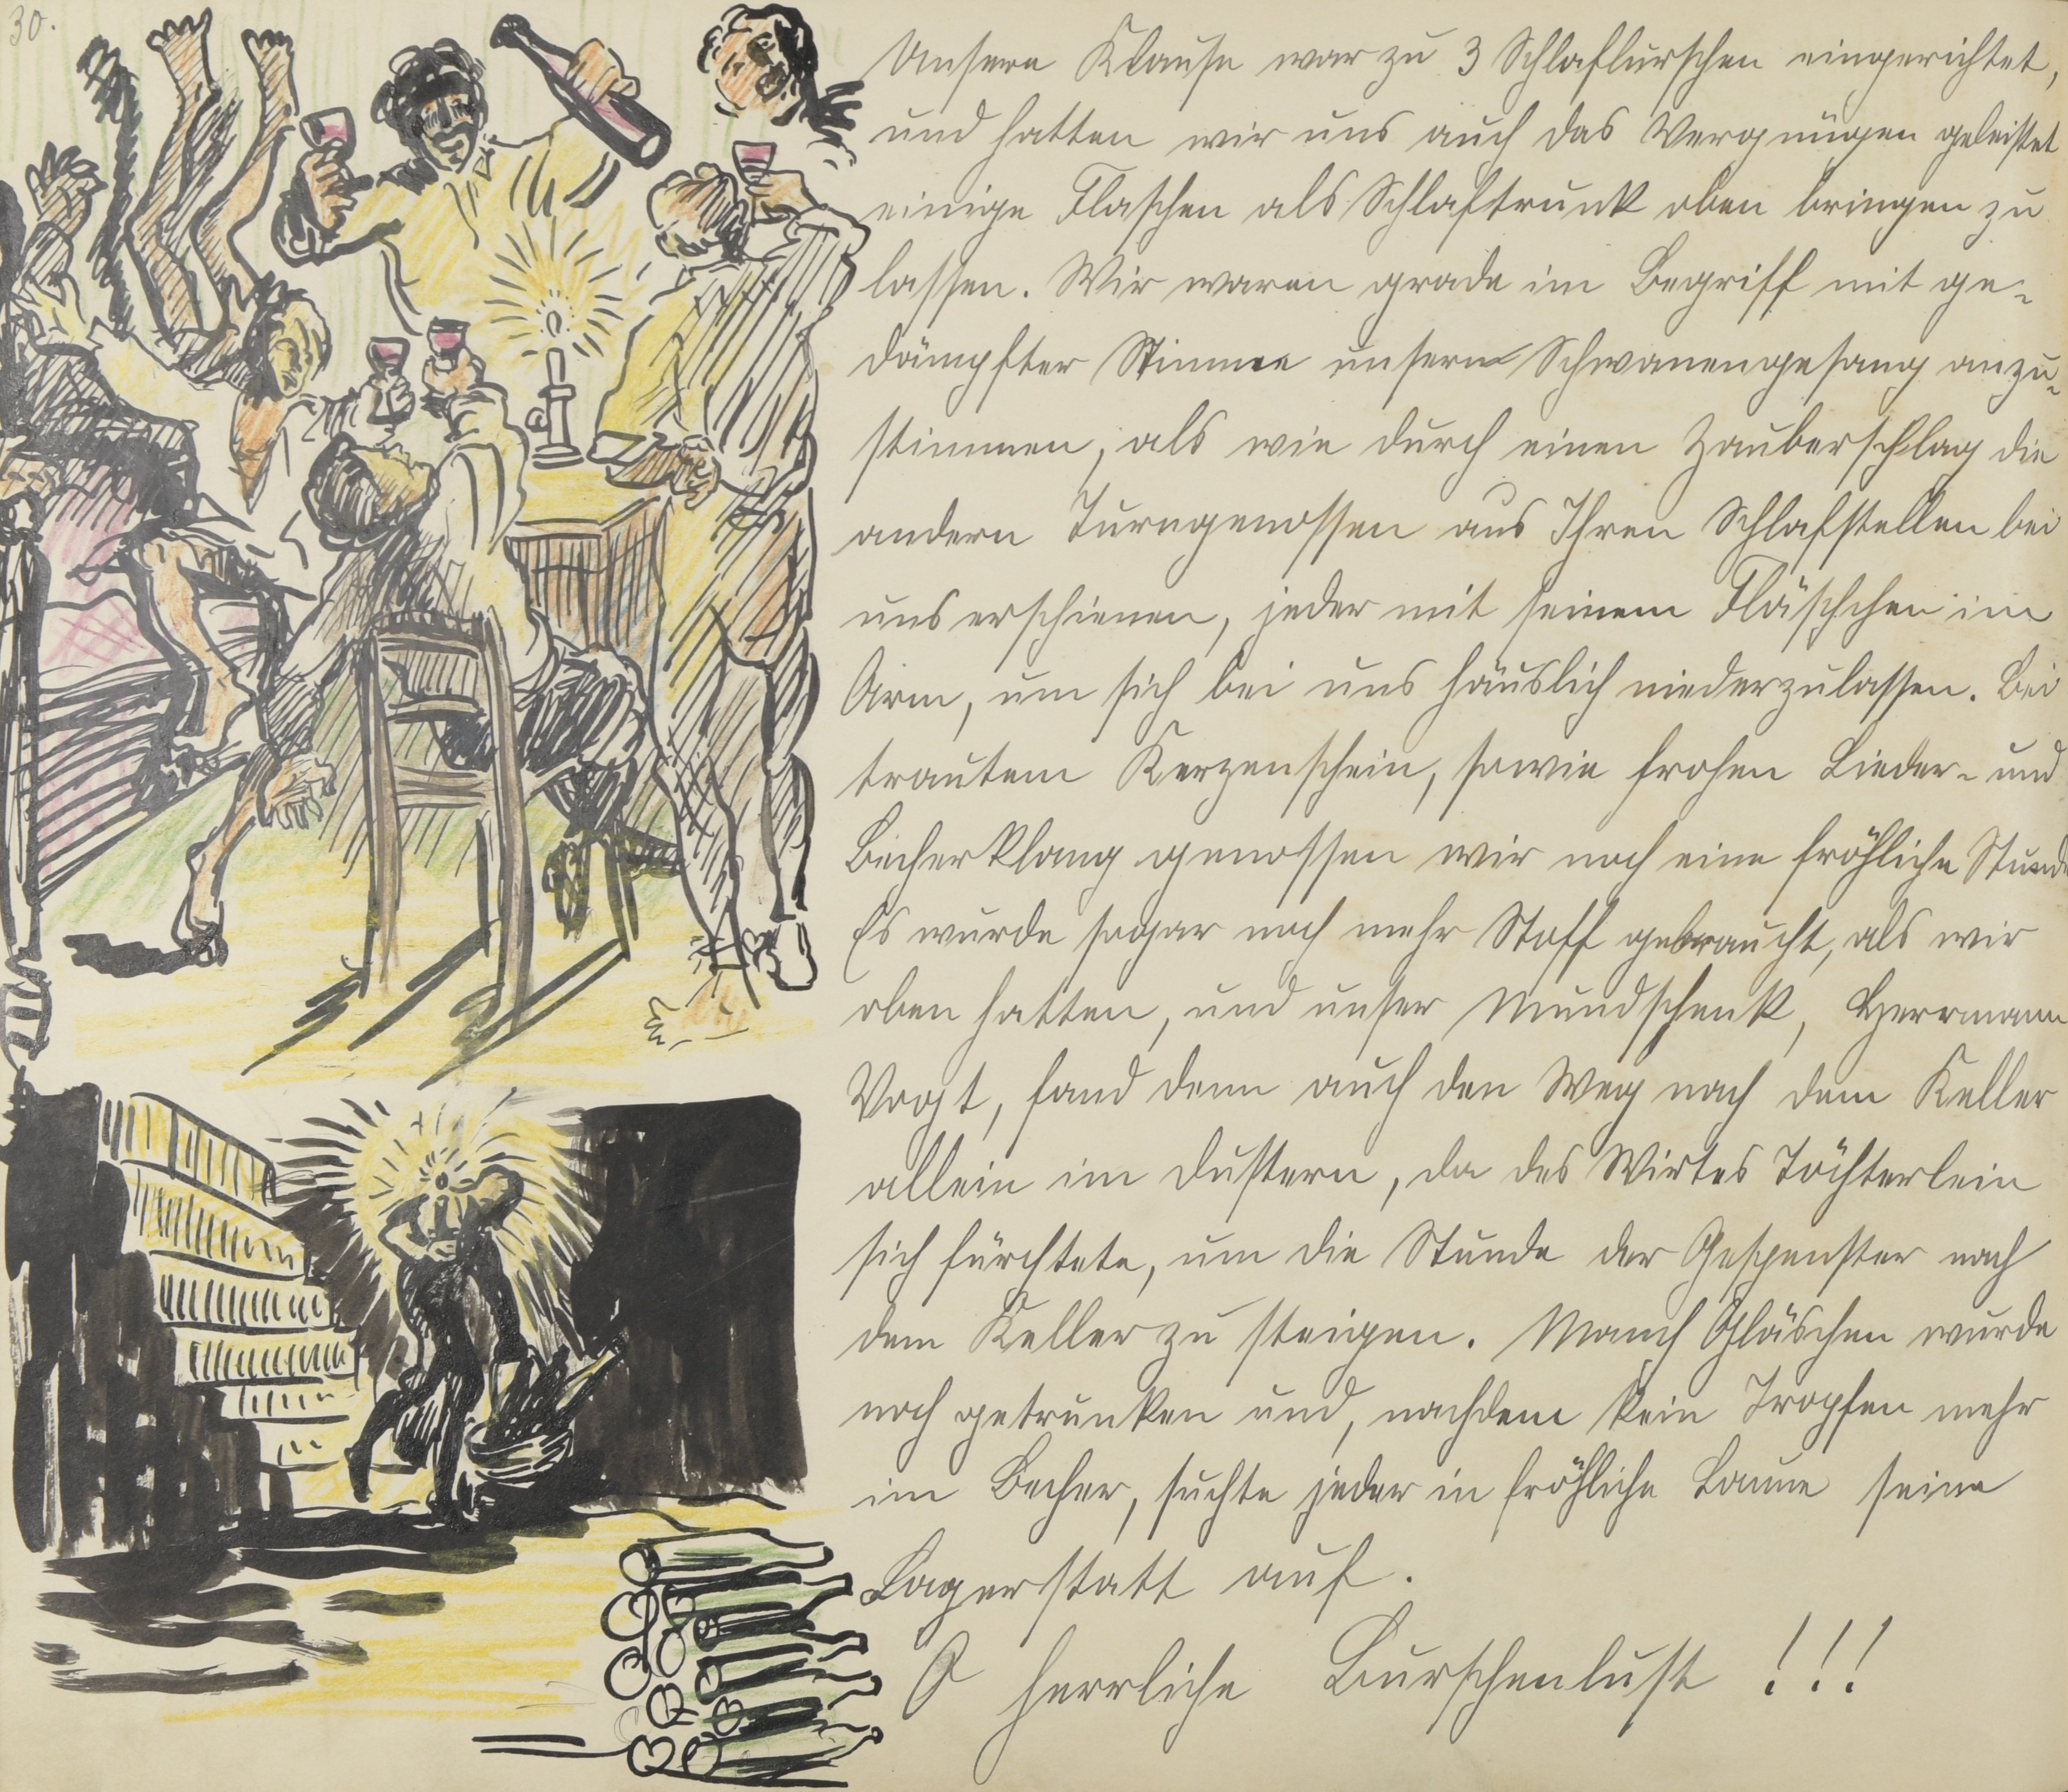 30.
Unsere Klause war zu 3 Schlafburschen eingerichtet,
und hatten wir uns auch das Vergnügen geleistet
einige Flaschen als Schlaftrunk oben bringen zu
lassen. Wir waren grade im Begriff mit ge-
dämpfter Stimme unsern Schwanengesang anzu-
stimmen, als wie durch einen Zauberschlag die
andern Turngenossen aus Ihren Schlafstellen bei
uns erschienen, jeder mit seinem Fläschchen im
Arm, um sich bei uns häuslich niederzulassen. Bei
trautem Kerzenschein, sowie frohen Lieder- und
Becherklang genossen wir noch eine fröhliche Stunde
Es wurde sogar noch mehr Stoff gebraucht, als wir
oben hatten, und unser Mundschenk, Herrmann
Vogt, fand denn auch den Weg nach dem Keller
allein im dustern, da des Wirtes Töchterlein
sich fürchtete, um die Stunde der Gespenster nach
dem Keller zu steigen. Manch Gläschen wurde
noch getrunken und, nachdem kein Tropfen mehr
im Becher, suchte jeder in fröhliche Laune seine
Lagerstatt auf.
O herrliche Burschenlust !!!